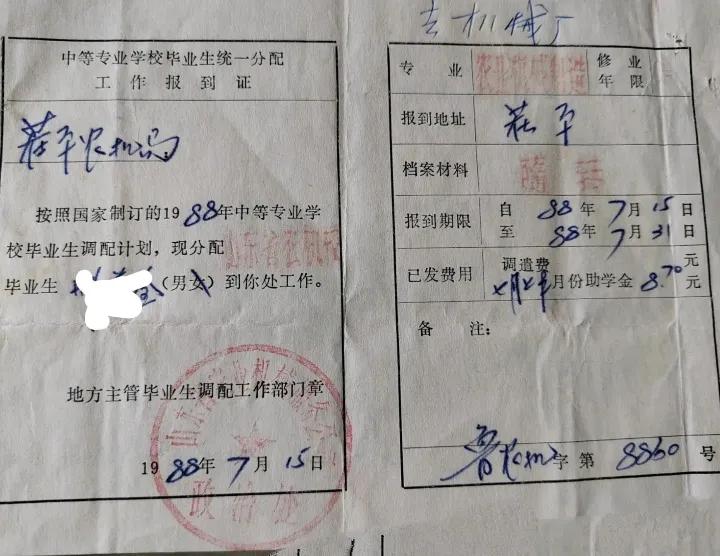 去机械厂
中等专业学校毕业生统一分配
工作报到证
茌平农机局
按照国家制订的1988年中等专业学
校毕业生调配计划，现分配
毕业生 (男女)到你处工作。
地方主管毕业生调配工作部门章
政治处
1988年7月15日
专业 农业机械制造 修业年限
报到地址 茌平
档案材料 随转
报到期限 自88年7月15日
至88年7月31日
已发费用 调遣费 元
月份助学金8.70元
备注：
鲁农机字第8860号